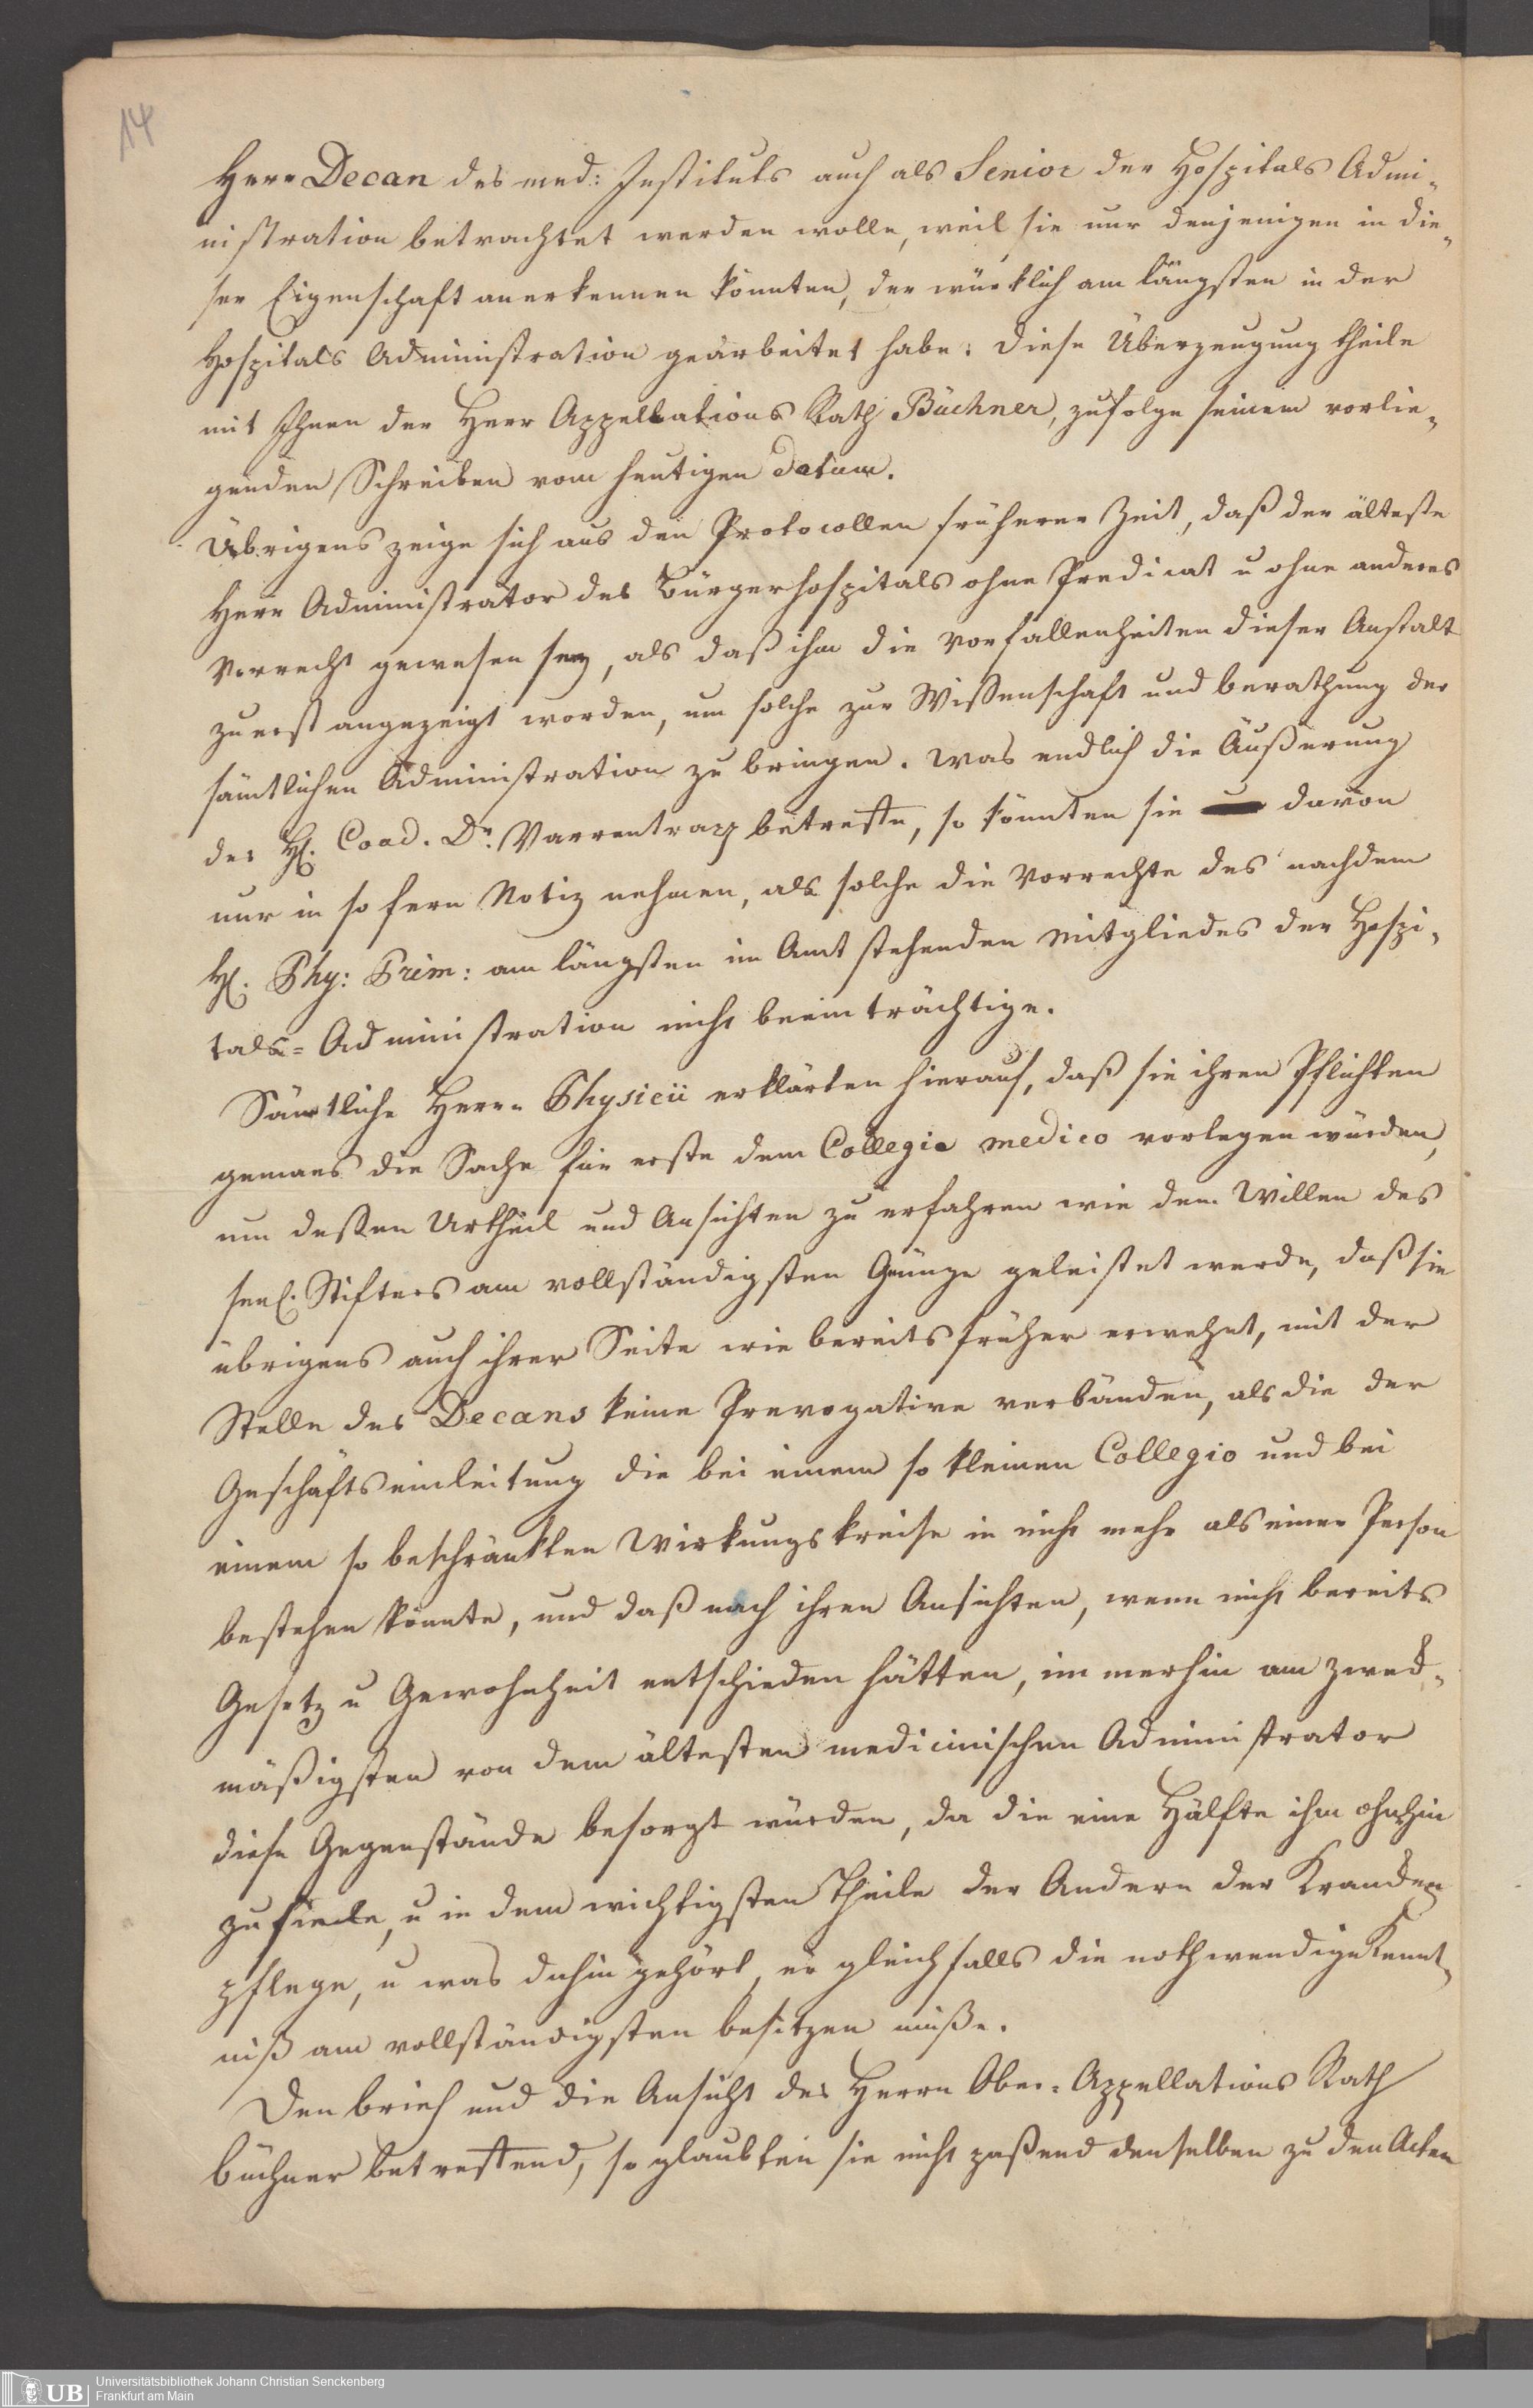 14
Herr Decan des med: Instituts auch als Senior der Hospitals Admi-
nistration betrachtet werden wolle, weil sie nur denjenigen in die-
ser Eigenschaft anerkennen könnten, der würklich am längsten in der
Hospitals Administration gearbeitet habe: diese Überzeugung theile
mit Ihnen der Herr Appellations Rath Büchner, zufolge seinem vorlie-
genden Schreiben vom heutigen datum.
Übrigens zeige sich aus den Protocollen früherer Zeit, daß der älteste
Herr Administrator des Bürgerhospitals ohne Predicat u ohne anderes
Vorrecht gewesen sey, als daß ihm die Vorfallenheiten dieser Anstalt
zuerst angezeigt worden, um solche zur Wissenschaft und berathung der
sämtlichen Administration zu bringen. Was endlich die Äußerung
des H. Coad. Dr. Varrentrap betreffe, so könnten sie davon
nur in so fern Notiz nehmen, als solche die Vorrechte des nachdem
H. Phy: Prim: am längsten im Amt stehenden Mitgliedes der Hospi-
tals-Administration nicht beeinträchtige.
Sämtliche Herrn Physicii erklärten hierauf, daß sie ihren Pflichten
gemaes die Sache für erste dem Collegio medico vorlegen würden,
um dessen Urtheil und Ansichten zu erfahren wie dem Willen des
seel. Stifters am vollständigsten Genüge geleistet werde, daß sie
übrigens auch ihrer Seite wie bereits früher erwehnt, mit der
Stelle des Decans keine Prerogative verbänden, als die der
Geschäftseinleitung die bei einem so kleinen Collegio und bei
einem so beschränkten Wirkungskreise in nicht mehr als einer Person
bestehen könnte, und daß nach ihren Ansichten, wenn nicht bereits
Gesetz u Gewohnheit entschieden hätten, immerhin am zweck-
mäßigsten von dem ältesten medicinischen Administrator
diese Gegenstände besorgt würden, da die eine Hälfte ihm ohnehin
zufiele, u in dem wichtigsten Theile der Andern der Krancken
pflege, u was dahin gehört, er gleichfalls die nothwendige Kennt-
niß am vollständigsten besitzen müße.
Den brief und die Ansicht des Herrn Ober-Appellations Rath
büchner betreffend, so glaubten sie nicht paßend denselben zu den Acten
UB Universitätsbibliothek Johann Christian Senckenberg
Frankfurt am Main